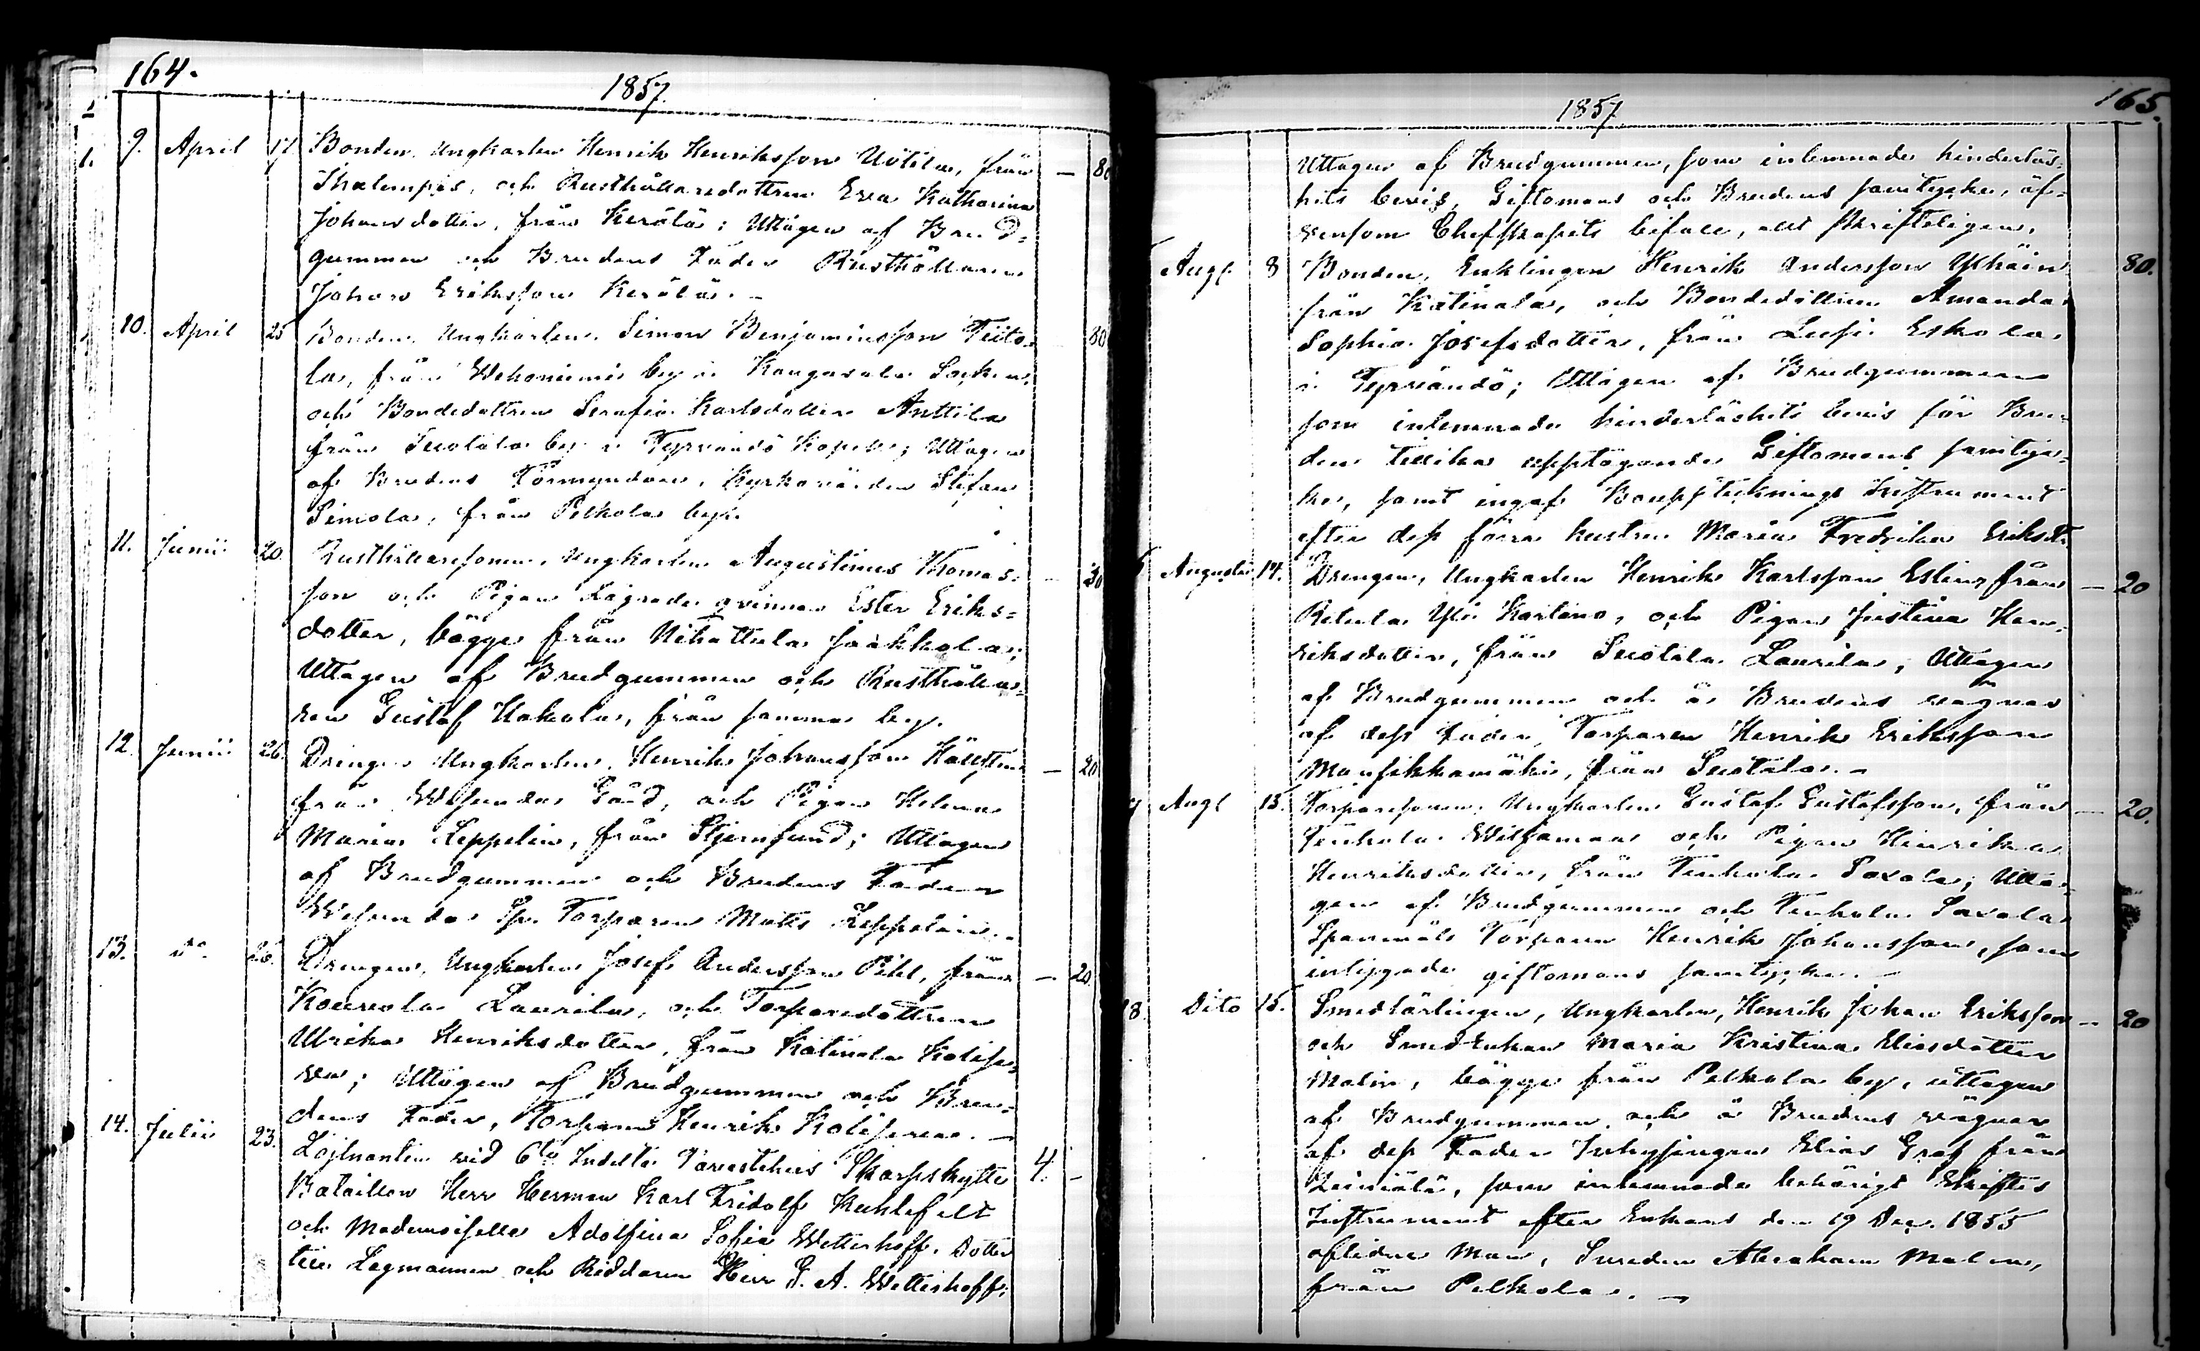 164.
1857
9. April 17. Bonden, Ungkarlen Henrik Henriksson Uotila, från — 80
Ihalempis, och Rusthållaredottren Eva Katharina
Johansdotter, från Kerälä; Uttagen af Brud-
gummen och Brudens Fader Rusthållaren
Johan Eriksson Kerälä. —
10. April 25 Bonden, Ungkarlen Simon Benjaminsson Tiito- 80
la, från Wehoniemi by i Kangasala Socken,
och Bondedottren Serafia Karlsdotter Anttila
från Suotala by i Tyrvändö Kapell; Uttagen
af Brudens Förmyndare, Kyrkovärden Stefan
Simola, från Pelkola by.
11. Junii 20. Rusthållaresonen, Ungkarlen Augustinus Thomas- — 30
son och Pigan Lägrade qvinnan Ester Eriks-
dotter, bägge från Nihattula Jaakkola;
Uttagen af Brudgummen och Rusthålla-
ren Gustaf Kakola, från samma by.
12. Junii 26. Drengen Ungkarlen, Henrik Johansson Hällsten — 20
från Wesunda Gård, och Pigan Helena
Maria Leppelin, från Stjernsund; Uttagen
af Brudgummen och Brudens Fader
Wesunda Torparen Mats Leppelin. -
13. do. 26. Drengen, Ungkarlen Josef Andersson Pihl, från — 20.
Laurila, och Torparedottren
Ulrika Henriksdotter, från Katinala Kolise-
va; Uttagen af Brudgummen och Bru-
dens Fader, Torparen Henrik Koliseva. —
14. Julii 23. Löjtnanten vid 6te Indelta Tavastehus Skarpskytte 4. -
Bataillon Herr Herman Karl Fridolf Kuhlefelt
och Mademoiselle Adolfina Sofia Wetterhoff, Dotter
till Lagmannen och Riddaren Herr G. A. Wetterhoff;
165.
1857
Uttagen af Brudgummen, som inlemnade hinderlös-
hets bevis, Giftomans och Brudens samtycke, äf-
vensom Chefskapets bifall, allt skrifteligen.
Aug. 8 Bonden, Enklingen Henrik Andersson Yhäin 80.
från Katinala, och Bondedottren Amanda
Sophia Josefsdotter, från Lusi Eskola
i Tyrvändö; Uttagen af Brudgummen
som inlemnade hinderlöshets bevis för Bru-
den tillika upptagande Giftomans samtyc-
ke, samt ingaf Bouppteknings Instrument
efter dess förra hustru Maria Fredrika Eriksdr.
Augusti 14. Drengen, Ungkarlen Henrik Karlsson Eslin, från — 20
Retula Yli Kartano, och Pigan Justina Hen-
riksdotter, från Suotala Laurila; Uttagen
af Brudgummen och å Brudens vägnar
af dess Fader, Torparen Henrik Eriksson
Mansikkamäki, från Suotala. —
Aug. 15. Torparesonen, Ungkarlen Gustaf Gustafsson, från — 20.
Tenhola Wilsamaa och Pigan Hinrika
Henriksdotter, från Tenhola Saxala; Utta-
gen af Brudgummen och Tenhola Saxala
Spanmåls Torparen Henrik Johansson, som
intygade giftomans samtycke. —
18. Dito 15. Smedlärlingen, Ungkarlen, Henrik Johan Eriksson — 20
och Smedenkan Maria Kristina Eliasdotter
Malin, bägge från Pelkola by, uttagen
af Brudgummen, och å Brudens vägnar
af dess Fader Inhysingen Elias Graf från
Leiniälä, som inlemnade behörigt Skiftes
Instrument efter Enkans den 19 Dec. 1855
aflidne Man, Smeden Abraham Malin,
från Pelkola. —